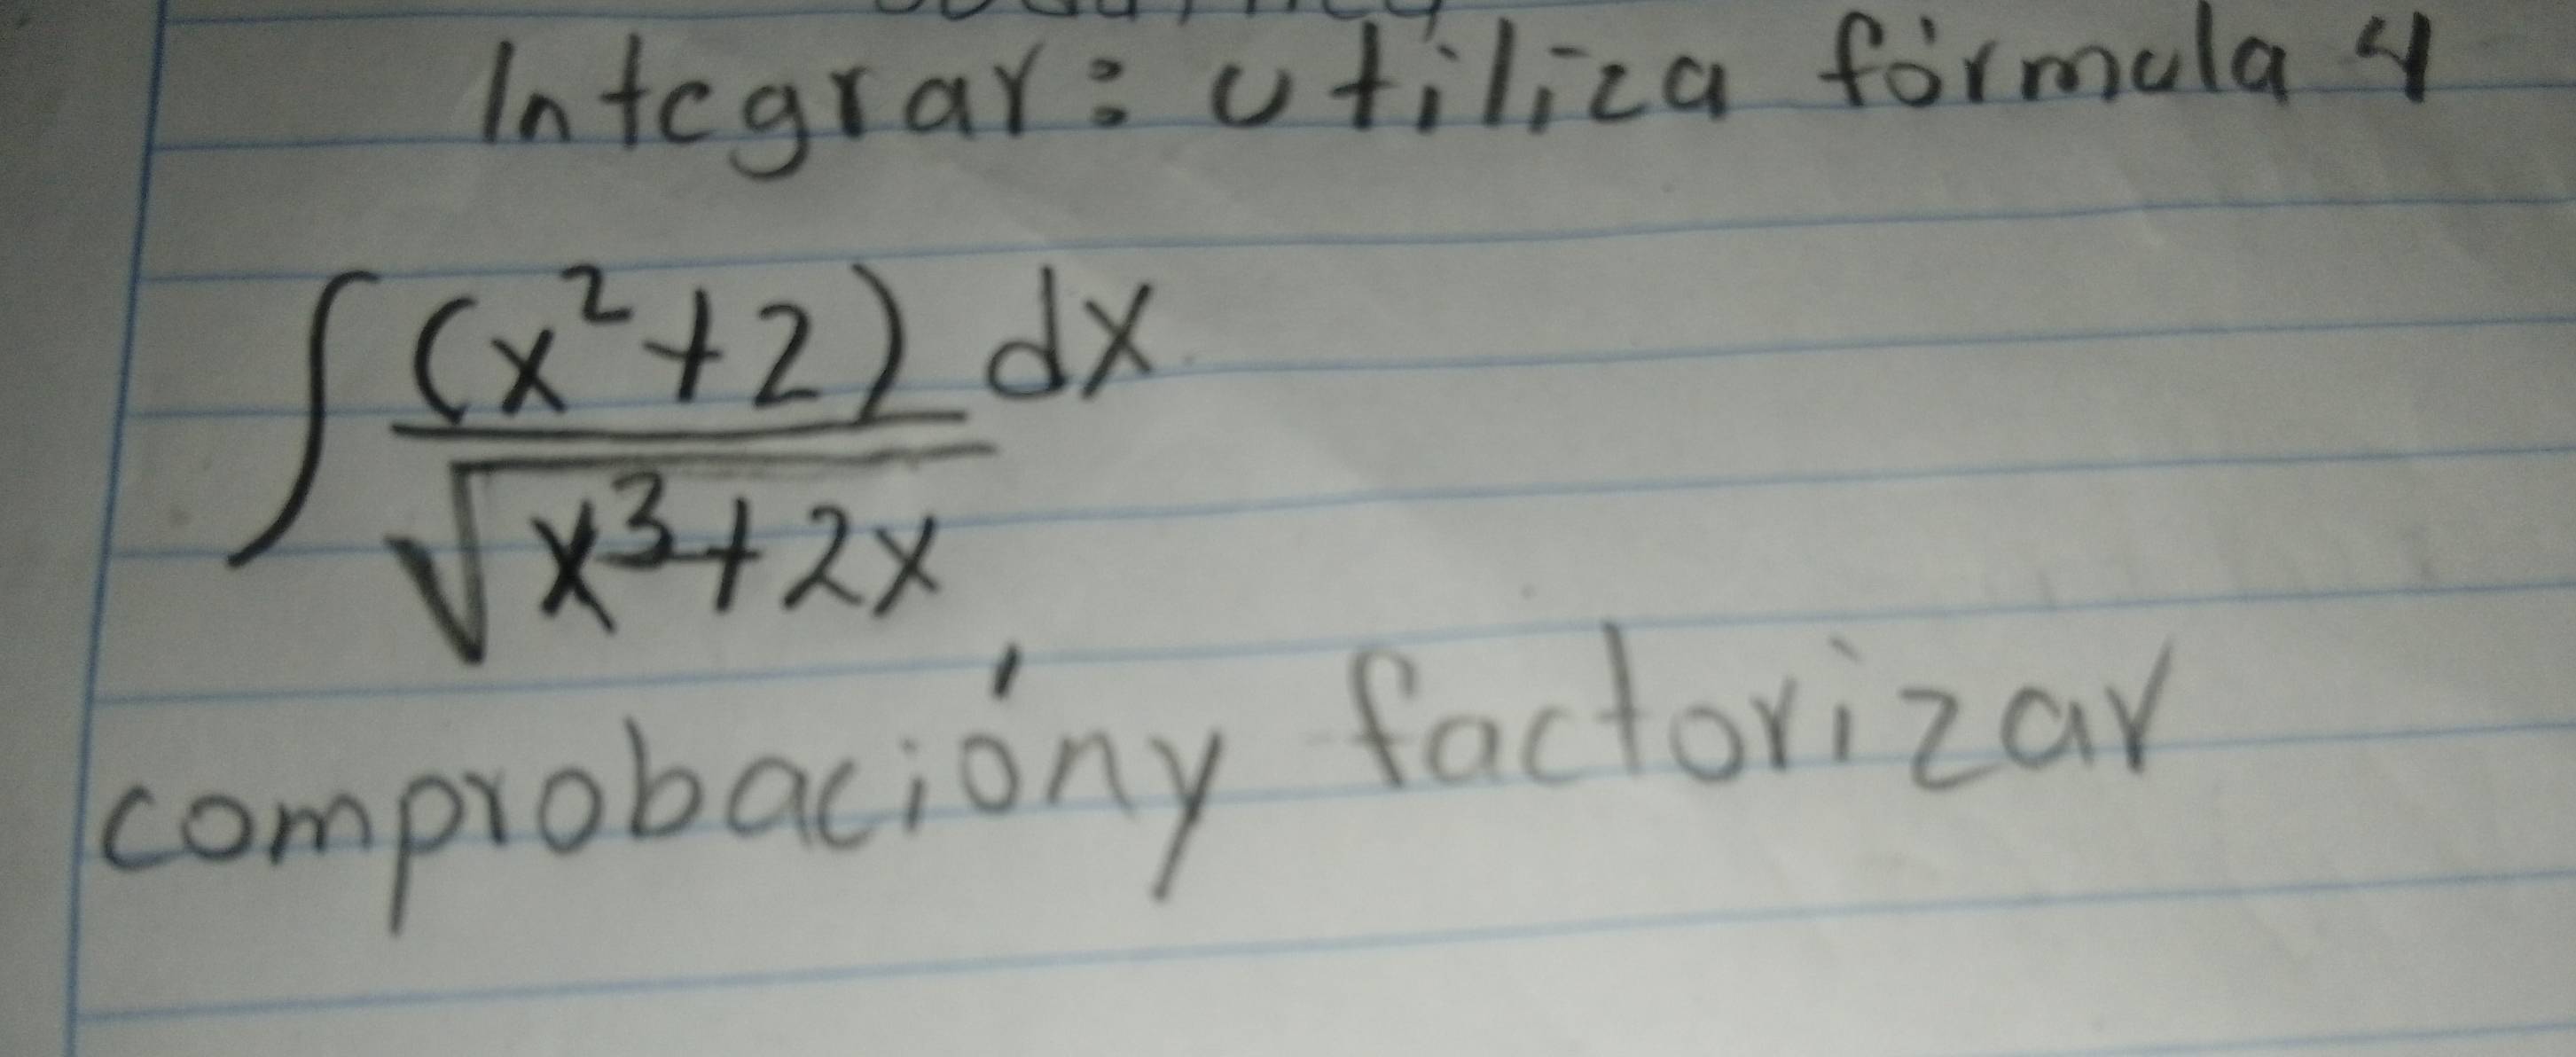 Integrar: utiliza fórmula 4
∫ (x² + 2) dx
√x³ + 2x
comprobación y factorizar